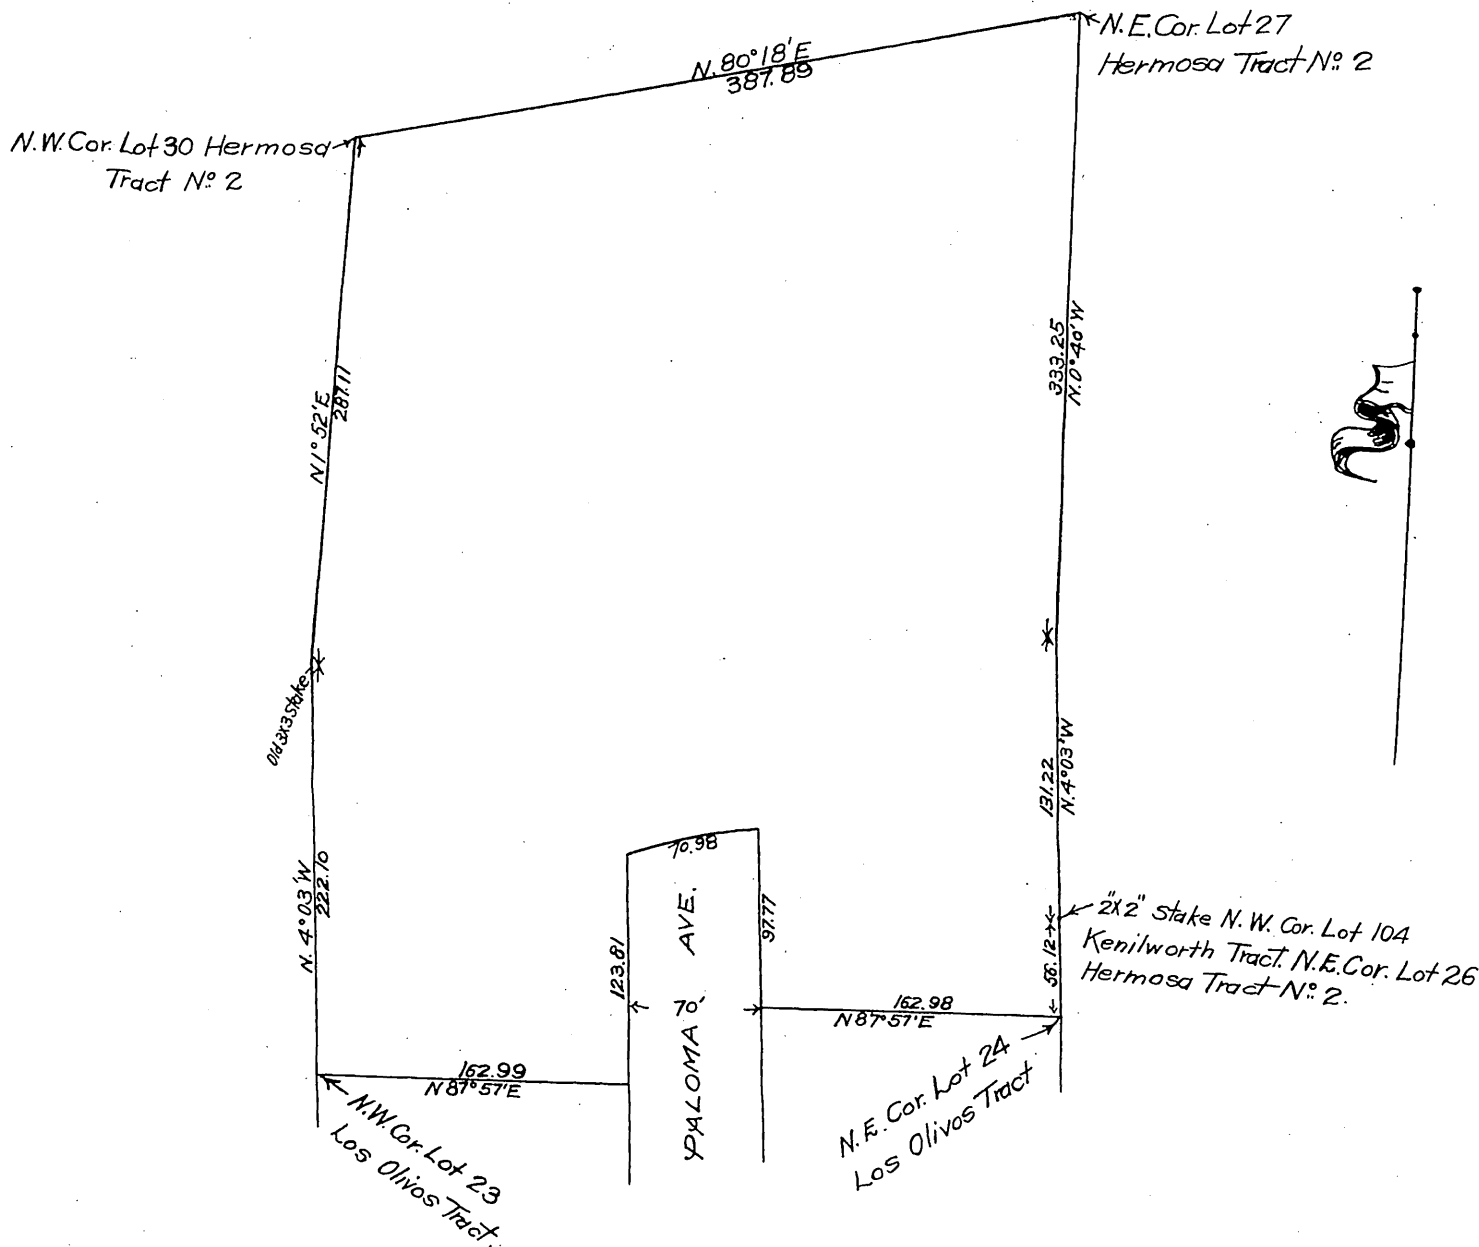 N.E. Cor. Lot 27
Hermosa Tract Nº 2
N. 80°18'E
387.89
N.W. Cor. Lot 30 Hermosa
Tract Nº 2
N 1° 52' E
287.11
333.25
N. 0° 40' W
Old 3X3 Stake
131.22
N. 4° 03' W
N. 4° 03' W
222.10
70.98
123.81
97.77
PALOMA AVE.
70'
56.12
2"X2" Stake N.W. Cor. Lot 104
Kenilworth Tract. N.E. Cor. Lot 26
Hermosa Tract Nº 2.
162.98
N 87°57'E
162.99
N 87°57'E
N.W. Cor. Lot 23
Los Olivos Tract.
N.E. Cor. Lot 24
Los Olivos Tract